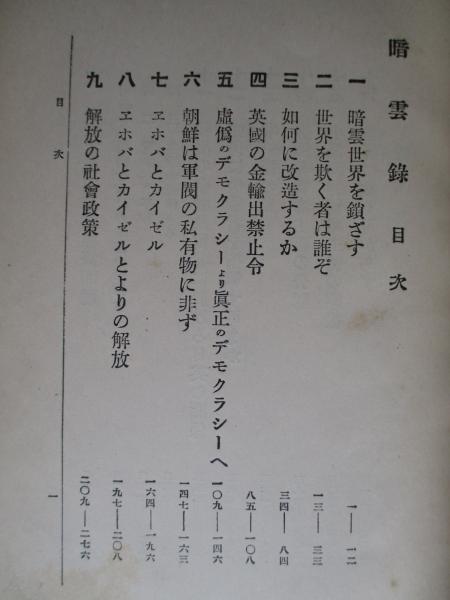 暗雲錄 目次
一 暗雲世界を鎖ざす 一——一二
二 世界を欺く者は誰ぞ 一三——三三
三 如何に改造するか 三四——八四
四 英國の金輸出禁止令 八五——一〇八
五 虛僞のデモクラシーより眞正のデモクラシーへ 一〇九——一四六
六 朝鮮は軍閥の私有物に非ず 一四七——一六三
七 ヱホバとカイゼル 一六四——一九六
八 ヱホバとカイゼルとよりの解放 一九七——二〇八
九 解放の社會政策 二〇九——二七六
目次
一